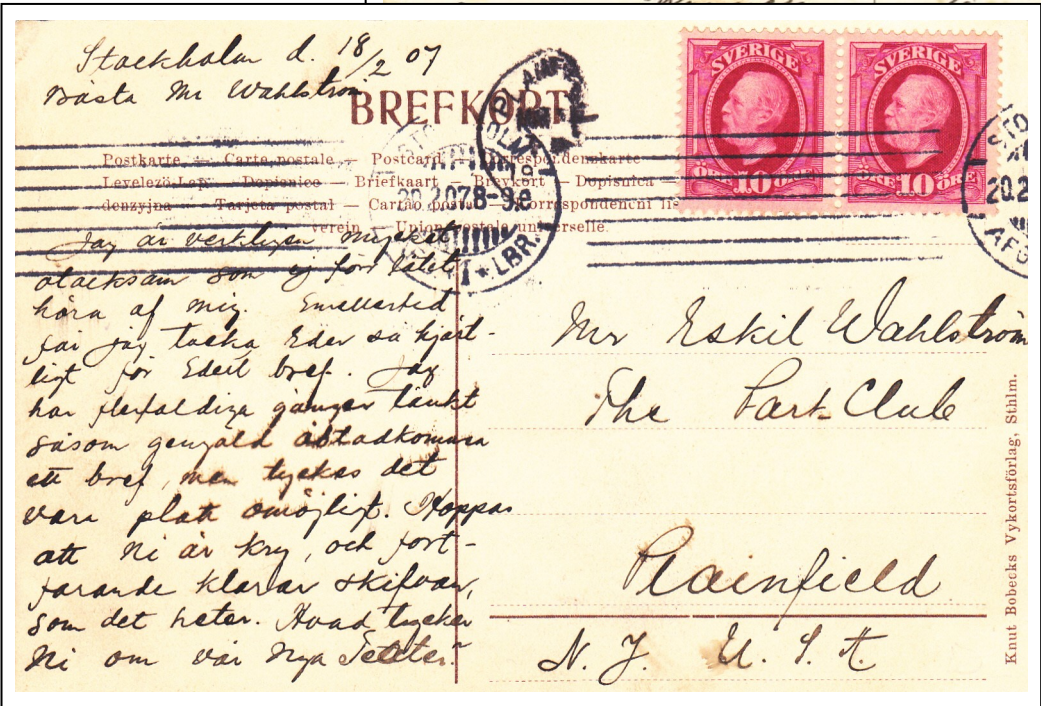 Stockholm d. 18/2 07
Bästa Mr Wahlström
BREFKORT
Postkarte — Carte postale — Postcard — Correspondenzkarte
Levelező-Lap — Dopisnice — Briefkaart — Brevkort — Dopisnica —
denzyjna — Tarjeta postal — Cartão postal — Korrespondenčni list
verein — Union postale universelle.
SVERIGE
10
ÖRE
SVERIGE
10
ÖRE
Jag är verkligen mycket
otacksam som ej förr låtit
höra af mig. Emellertid
får jag tacka Eder så hjärt-
ligt för Edert bref. Jag
har flerfaldiga gånger tänkt
såsom gengäld åstadkomma
ett bref, men tyckes det
vara platt omöjligt. Hoppas
att Ni är kry, och fort-
farande klarar skifvan,
som det heter. Hvad tycker
Ni om vår nya
Mr Eskil Wahlström
The Park Club
Plainfield
N. J. U. S. A.
Knut Bobecks Vykortsförlag, Sthlm.